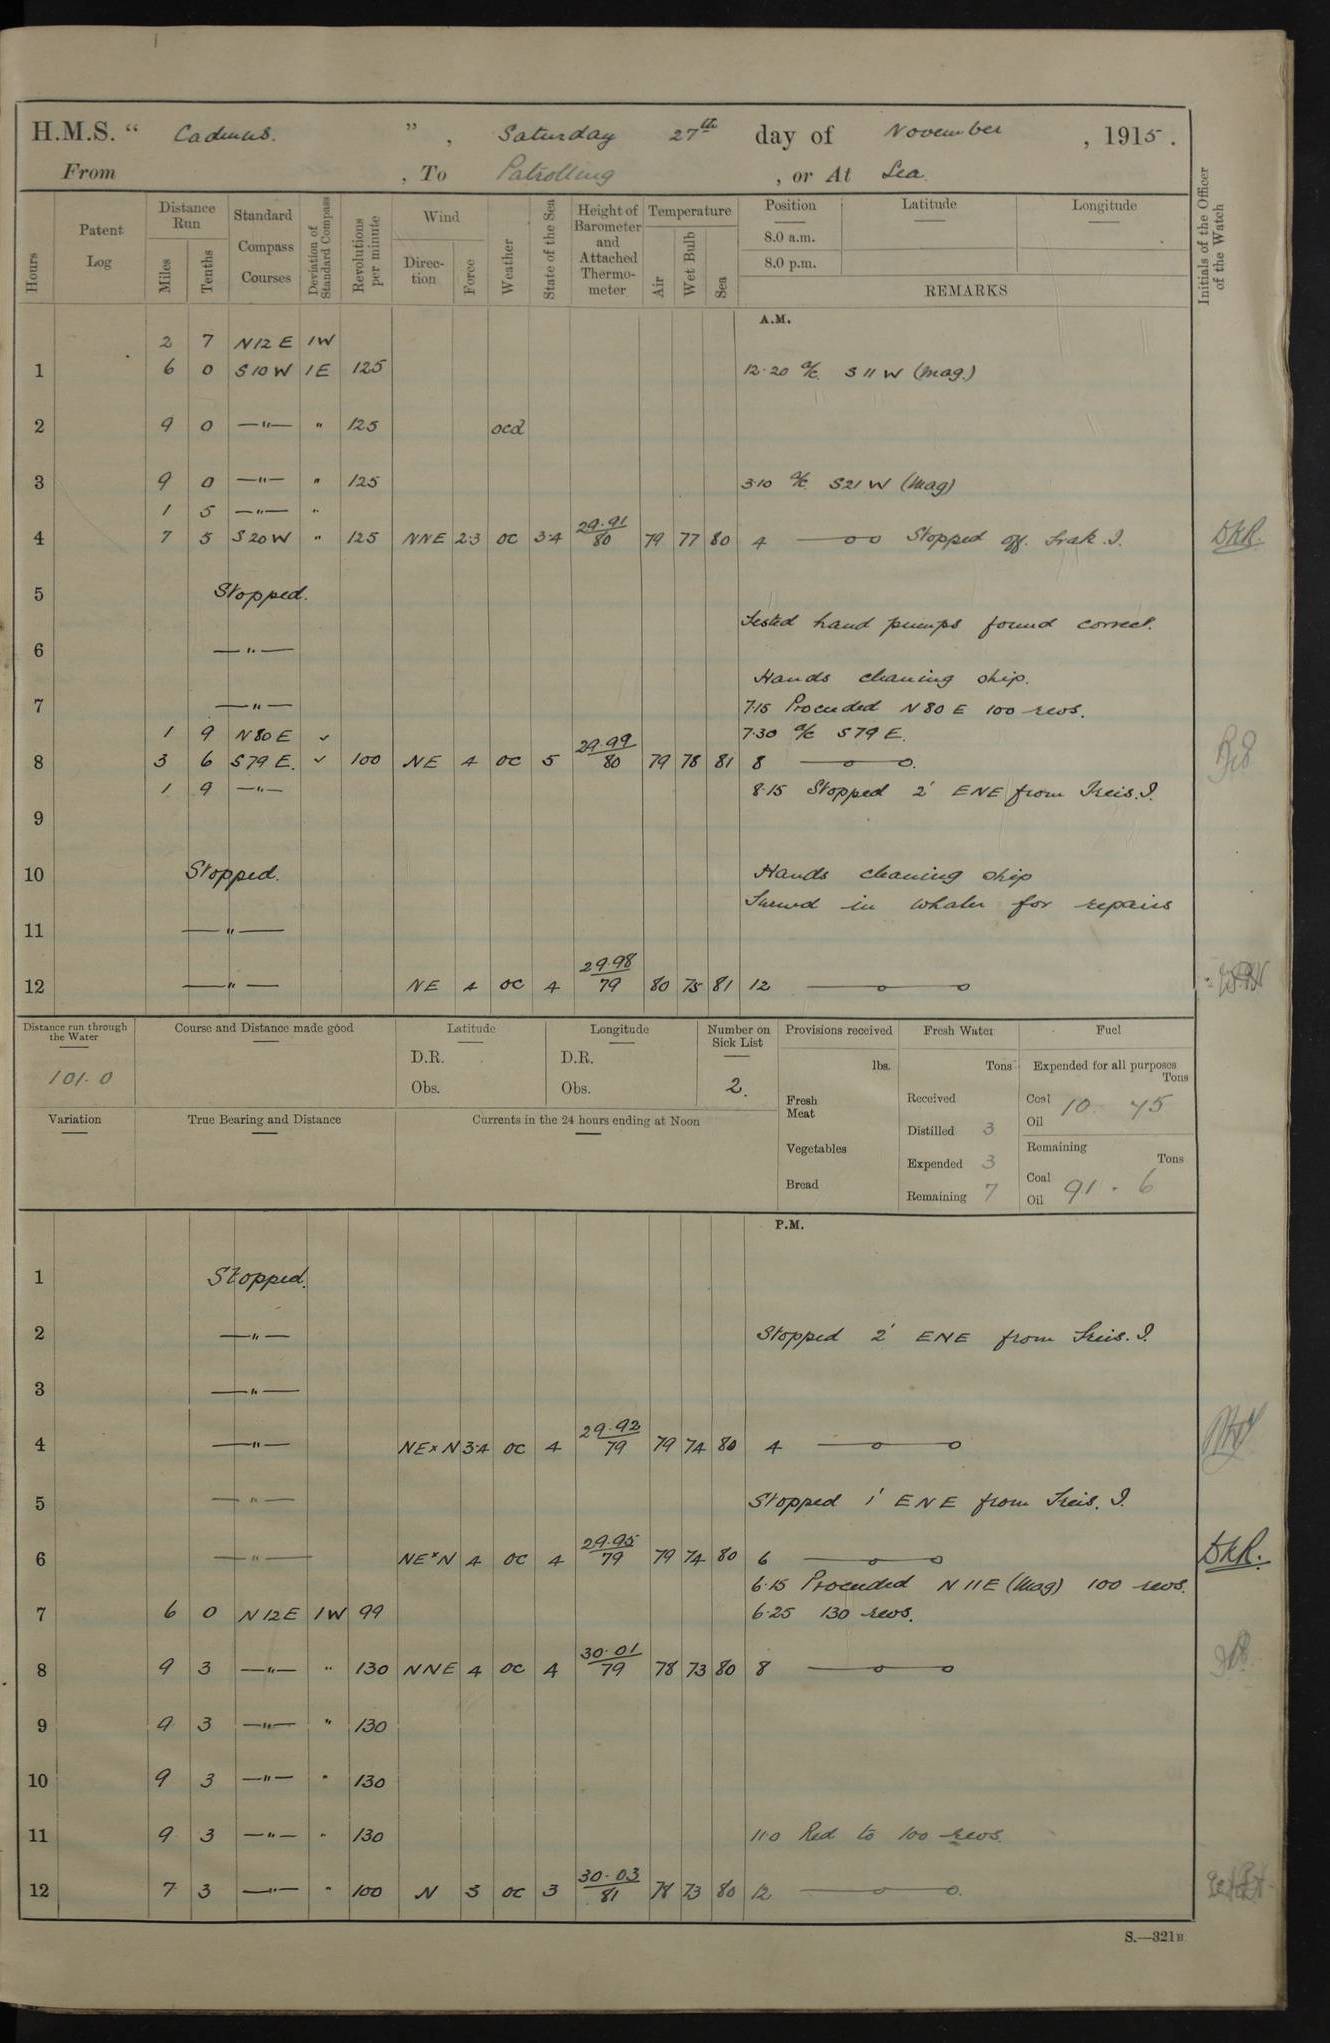 H.M.S. " Cadmus. " , Saturday 27th day of November , 1915.
From , To Patrolling , or At Sea.
Hours
Patent Log
Distance Run
Miles
Tenths
Standard Compass Courses
Deviation of Standard Compass
Revolutions per minute
Wind
Direction
Force
Weather
State of the Sea
Height of Barometer and Attached Thermometer
Temperature
Air
Wet Bulb
Sea
Position
Latitude
Longitude
8.0 a.m.
8.0 p.m.
REMARKS
Initials of the Officer of the Watch
A.M.
2 7 N12E 1W
1 6 0 S10W 1E 125 12.20 a/c. S11W (Mag.)
2 9 0 —"— " 125 ocd
3 9 0 —"— " 125 3.10 a/c. S21W (Mag)
1 5 —"— "
4 7 5 S20W " 125 NNE 2.3 oc 3.4 29.91/80 79 77 80 4 —o—o Stopped off. I. DKR.
5 Stopped.
Tested hand pumps found correct.
6 —"—
Hands cleaning ship.
7 —"— 7.15 Proceeded N80E 100 revs.
1 9 N80E ✓ 7.30 a/c S79E.
8 3 6 S79E. ✓ 100 NE 4 oc 5 29.99/80 79 78 81 8 —o—o.
1 9 —"— 8.15 Stopped 2' ENE from Treis. I.
9
10 Stopped. Hands cleaning ship
Turned in whaler for repairs
11 —"—
12 —"— NE 4 oc 4 29.98/79 80 75 81 12 —o—o
Distance run through the Water
101.0
Course and Distance made good
Latitude
D.R.
Obs.
Longitude
D.R.
Obs.
Number on Sick List
2.
Provisions received
lbs.
Fresh Meat
Vegetables
Bread
Fresh Water
Tons
Received
Distilled 3
Expended 3
Remaining 7
Fuel
Expended for all purposes
Tons
Coal 10. 45
Oil
Remaining
Tons
Coal 91.6
Oil
Variation
True Bearing and Distance
Currents in the 24 hours ending at Noon
P.M.
1 Stopped.
2 —"— Stopped 2' ENE from Treis. I.
3 —"—
4 —"— NExN 3.4 oc 4 29.92/79 79 74 80 4 —o—o
5 —"— Stopped 1' ENE from Treis. I.
6 —"— NExN 4 oc 4 29.95/79 79 74 80 6 —o—o DKR.
6.15 Proceeded N11E (Mag) 100 revs.
7 6 0 N12E 1W 99 6.25 130 revs.
8 9 3 —"— " 130 NNE 4 oc 4 30.01/79 78 73 80 8 —o—o
9 9 3 —"— " 130
10 9 3 —"— " 130
11 9 3 —"— " 130 11.0 Red to 100 revs.
12 7 3 —"— " 100 N 3 oc 3 30.03/81 78 73 80 12 —o—o.
S.—321B